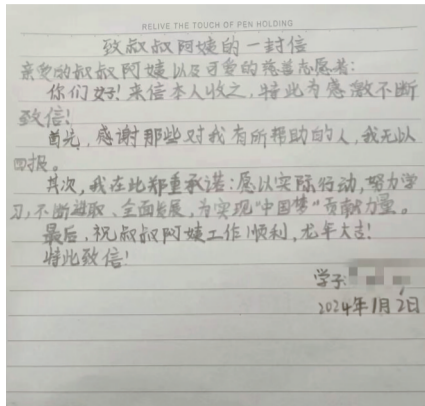 RELIVE THE TOUCH OF PEN HOLDING
致叔叔阿姨的一封信
亲爱的叔叔阿姨以及可爱的慈善志愿者：
你们好！来信本人收之，特此为感激不断
致信！
首先，感谢那些对我有所帮助的人，我无以
回报。
其次，我在此郑重承诺：愿以实际行动，努力学
习，不断进取、全面发展，为实现“中国梦”贡献力量。
最后，祝叔叔阿姨工作顺利，龙年大吉！
特此致信！
学子：
2024年1月2日